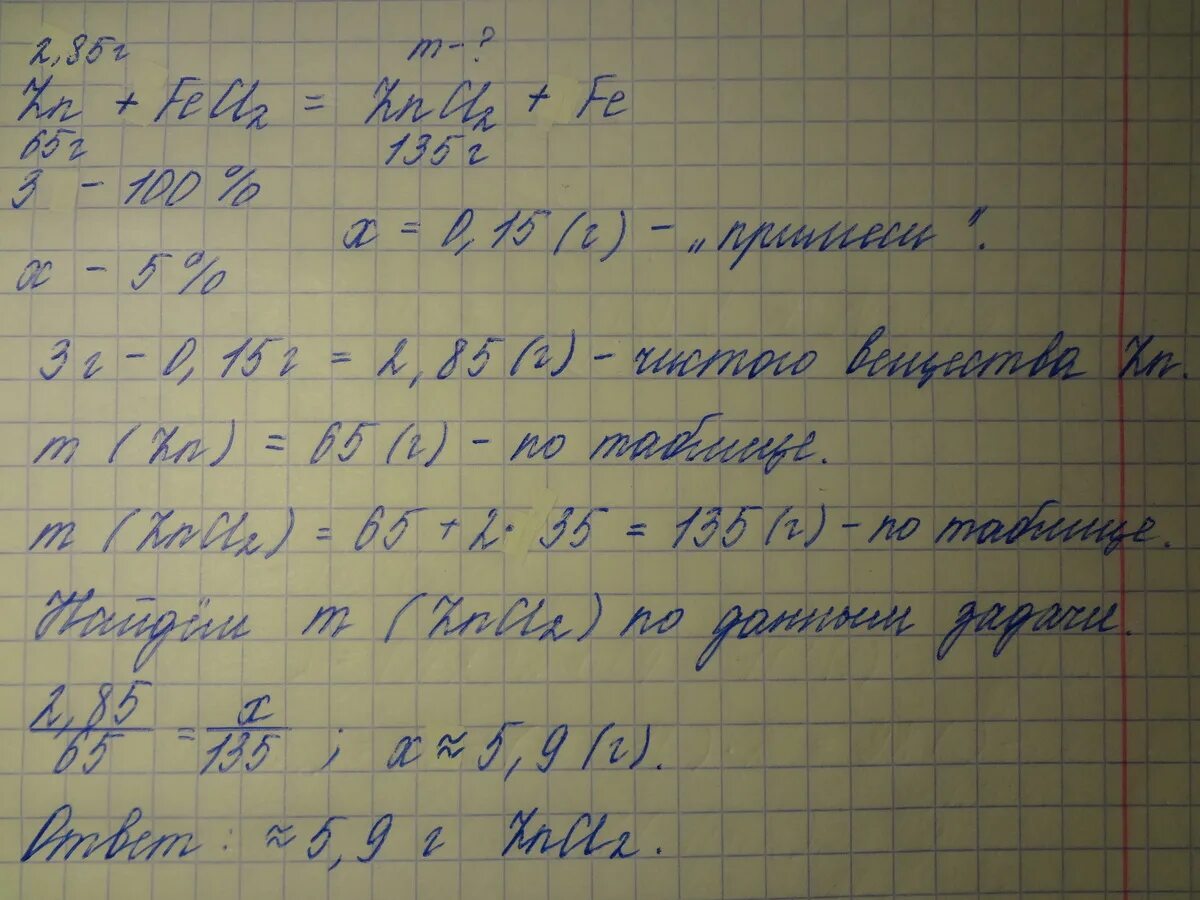 2,85г m-?
Zn + FeCl₂ = ZnCl₂ + Fe
65г 135г
3 - 100%
x = 0,15 (г) - „примеси".
x - 5%
3г - 0,15г = 2,85 (г) - чистого вещества Zn.
m (Zn) = 65 (г) - по таблице.
m (ZnCl₂) = 65 + 2· 35 = 135 (г) - по таблице.
Найдём m (ZnCl₂) по данным задачи.
2,85/65 = x/135 ; x ≈ 5,9 (г).
Ответ: ≈ 5,9 г ZnCl₂.